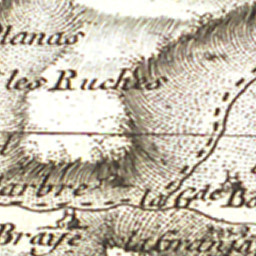 lanas
les Ruches
arbre
la Gde Ba
Braife
la Granja